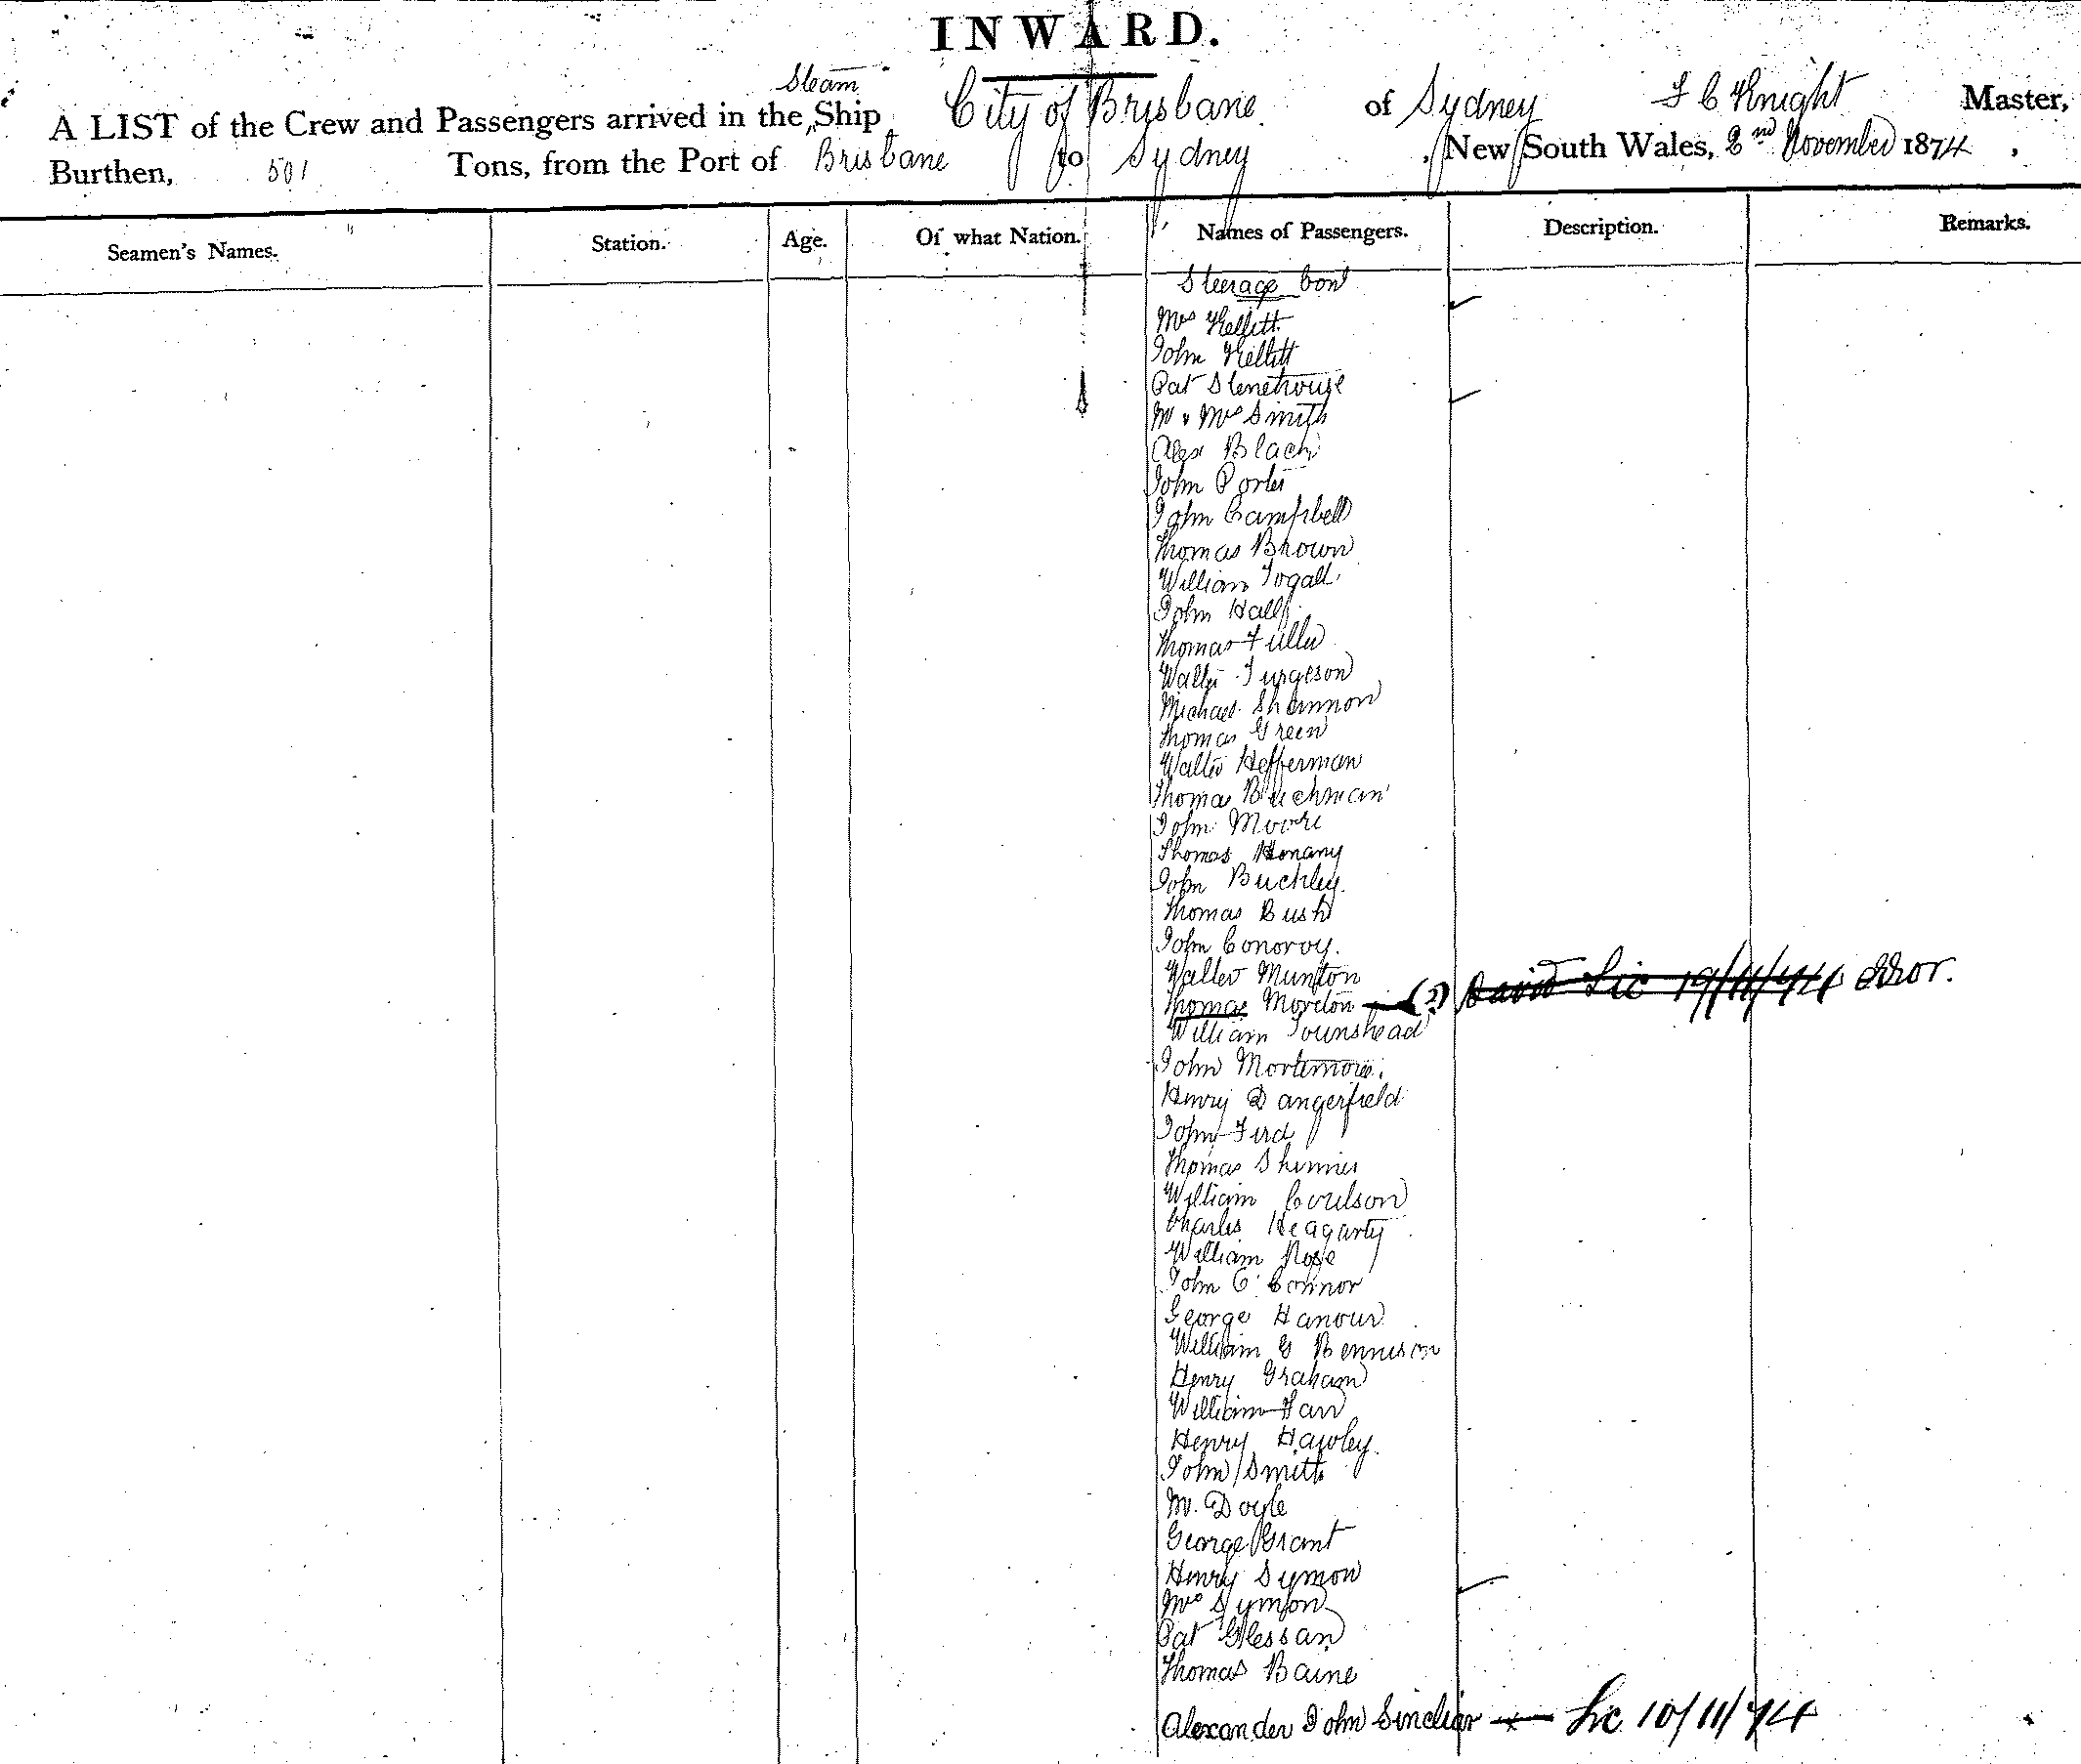 INWARD.
A LIST of the Crew and Passengers arrived in the Steam Ship City of Brisbane of Sydney Knight Master,
Burthen, 501 Tons, from the Port of Brisbane to Sydney, New South Wales, 2nd November 1874,
Seamen's Names. Station. Age. Of what Nation. Names of Passengers. Description. Remarks.
Steerage
Mrs Kellitt
John Kellitt
Pat Stenehouse
Mr & Mrs Smith
Alex Black
John Porter
John Campbell
Thomas Brown
William
John Hall
Thomas Fuller
Walter Furgeson
Michael Shannon
Thomas Green
Walter Hefferman
Thomas
John Moore
Thomas Honany
John Buckley
Thomas Bush
John Conoroy.
Walter Munton
Thomas Morton (?) David Lic 19/11/74 error.
William Tounshead
John Mortimore.
Henry Dangerfield
John
Thomas
William Coulson
Charles Heagarty
William Rose
John O'Connor
George Hanour
William G Bennison
Henry Graham
William Farr
Henry Hawley.
John Smith
M. Doyle
George Grant
Henry Symon
Mrs Symon
Pat Glessan
Thomas Baine
Alexander John Sinclair Lic 10/11/74